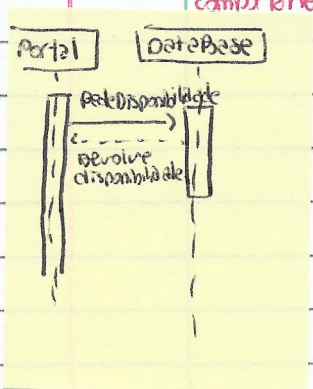 componente
Portal
DataBase
PedeDisponibilidade
Devolve
disponibilidade